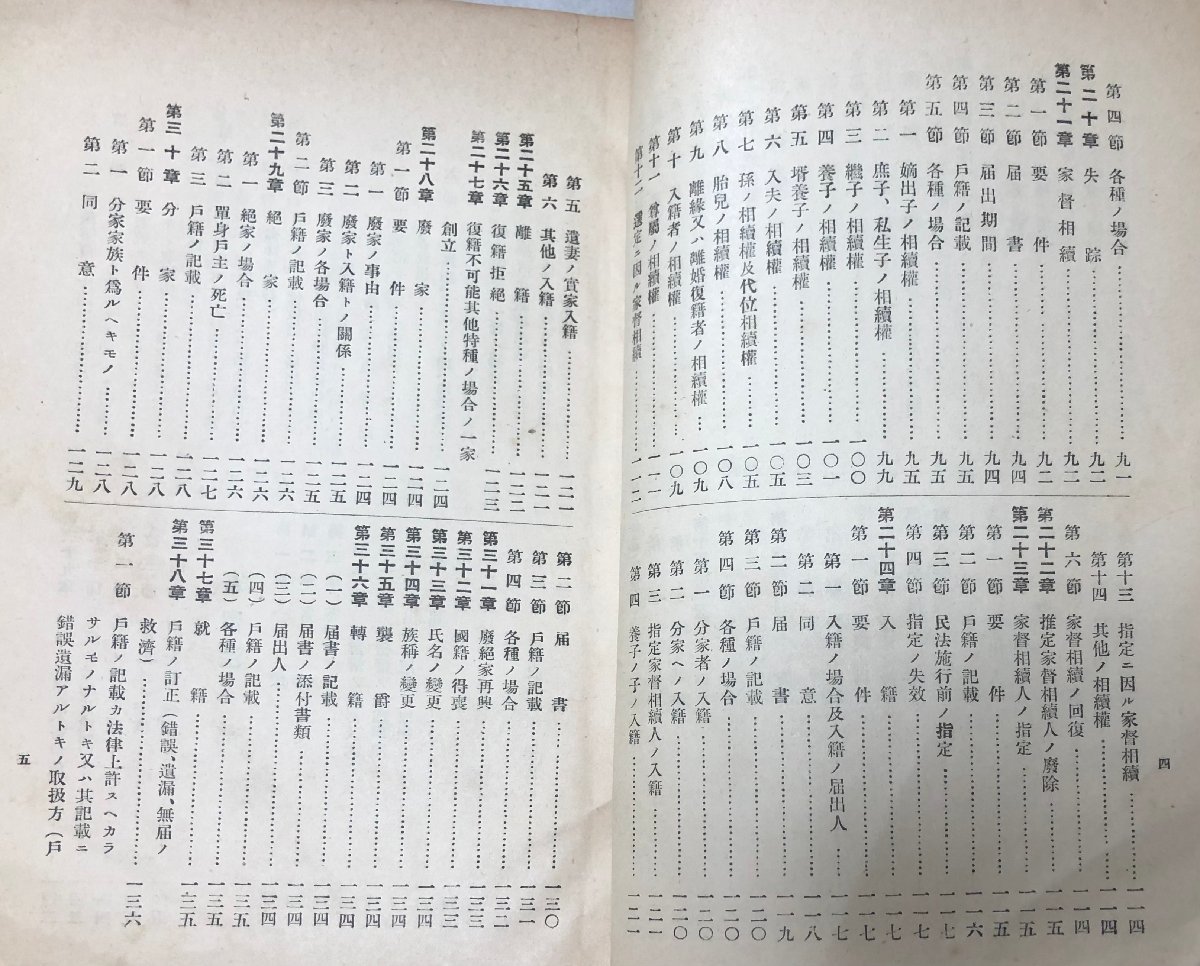 第四節 各種ノ場合……九一
第二十章 失踪……九二
第二十一章 家督相續……九二
第一節 要件……九二
第二節 届書……九四
第三節 届出期間……九四
第四節 戶籍ノ記載……九五
第五節 各種ノ場合……九五
第一 嫡出子ノ相續權……九五
第二 庶子、私生子ノ相續權……九九
第三 繼子ノ相續權……一〇〇
第四 養子ノ相續權……一〇一
第五 壻養子ノ相續權……一〇三
第六 入夫ノ相續權……一〇五
第七 孫ノ相續權及代位相續權……一〇五
第八 胎兒ノ相續權……一〇八
第九 離緣又ハ離婚復籍者ノ相續權……一〇九
第十 入籍者ノ相續權……一〇九
第十一 尊屬ノ相續權……一一一
第十二 選定ニ因ル家督相續……一一二
第十三 指定ニ因ル家督相續……一一四
第十四 其他ノ相續權……一一四
第六節 家督相續ノ回復……一一四
第二十二章 推定家督相續人ノ廢除……一一五
第二十三章 家督相續人ノ指定……一一五
第一節 要件……一一五
第二節 戶籍ノ記載……一一六
第三節 民法施行前ノ指定……一一七
第四節 指定ノ失效……一一七
第二十四章 入籍……一一七
第一節 要件……一一七
第一 入籍ノ場合及入籍ノ届出人……一一七
第二 同意……一一八
第二節 届書……一一九
第三節 戶籍ノ記載……一二〇
第四節 各種ノ場合……一二〇
第一 分家者ノ入籍……一二〇
第二 分家ヘノ入籍……一二〇
第三 指定家督相續人ノ入籍……一二一
第四 養子ノ子ノ入籍……一二一
四
第五 遺妻ノ實家入籍……一二一
第六 其他ノ入籍……一二一
第二十五章 離籍……一二二
第二十六章 復籍拒絕……一二三
第二十七章 復籍不可能其他特種ノ場合ノ一家
創立……一二四
第二十八章 廢家……一二四
第一節 要件……一二四
第一 廢家ノ事由……一二四
第二 廢家ト入籍トノ關係……一二五
第三 廢家ノ各場合……一二五
第二節 戶籍ノ記載……一二六
第二十九章 絕家……一二六
第一 絕家ノ場合……一二六
第二 單身戶主ノ死亡……一二七
第三 戶籍ノ記載……一二八
第三十章 分家……一二八
第一節 要件……一二八
第一 分家家族ト爲ルヘキモノ……一二八
第二 同意……一二九
第二節 届書……一三〇
第三節 戶籍ノ記載……一三一
第四節 各種ノ場合……一三二
第三十一章 廢絕家再興……一三三
第三十二章 國籍ノ得喪……一三三
第三十三章 氏名ノ變更……一三四
第三十四章 族稱ノ變更……一三四
第三十五章 襲爵……一三四
第三十六章 轉籍……一三四
（一） 届書ノ記載……一三四
（二） 届書ノ添付書類……一三四
（三） 届出人……一三四
（四） 戶籍ノ記載……一三五
（五） 各種ノ場合……一三五
第三十七章 就籍……一三五
第三十八章 戶籍ノ訂正（錯誤、遺漏、無届ノ
救濟）……一三六
第一節 戶籍ノ記載カ法律上許スヘカラ
サルモノナルトキ又ハ其記載ニ
錯誤遺漏アルトキノ取扱方（戶
五